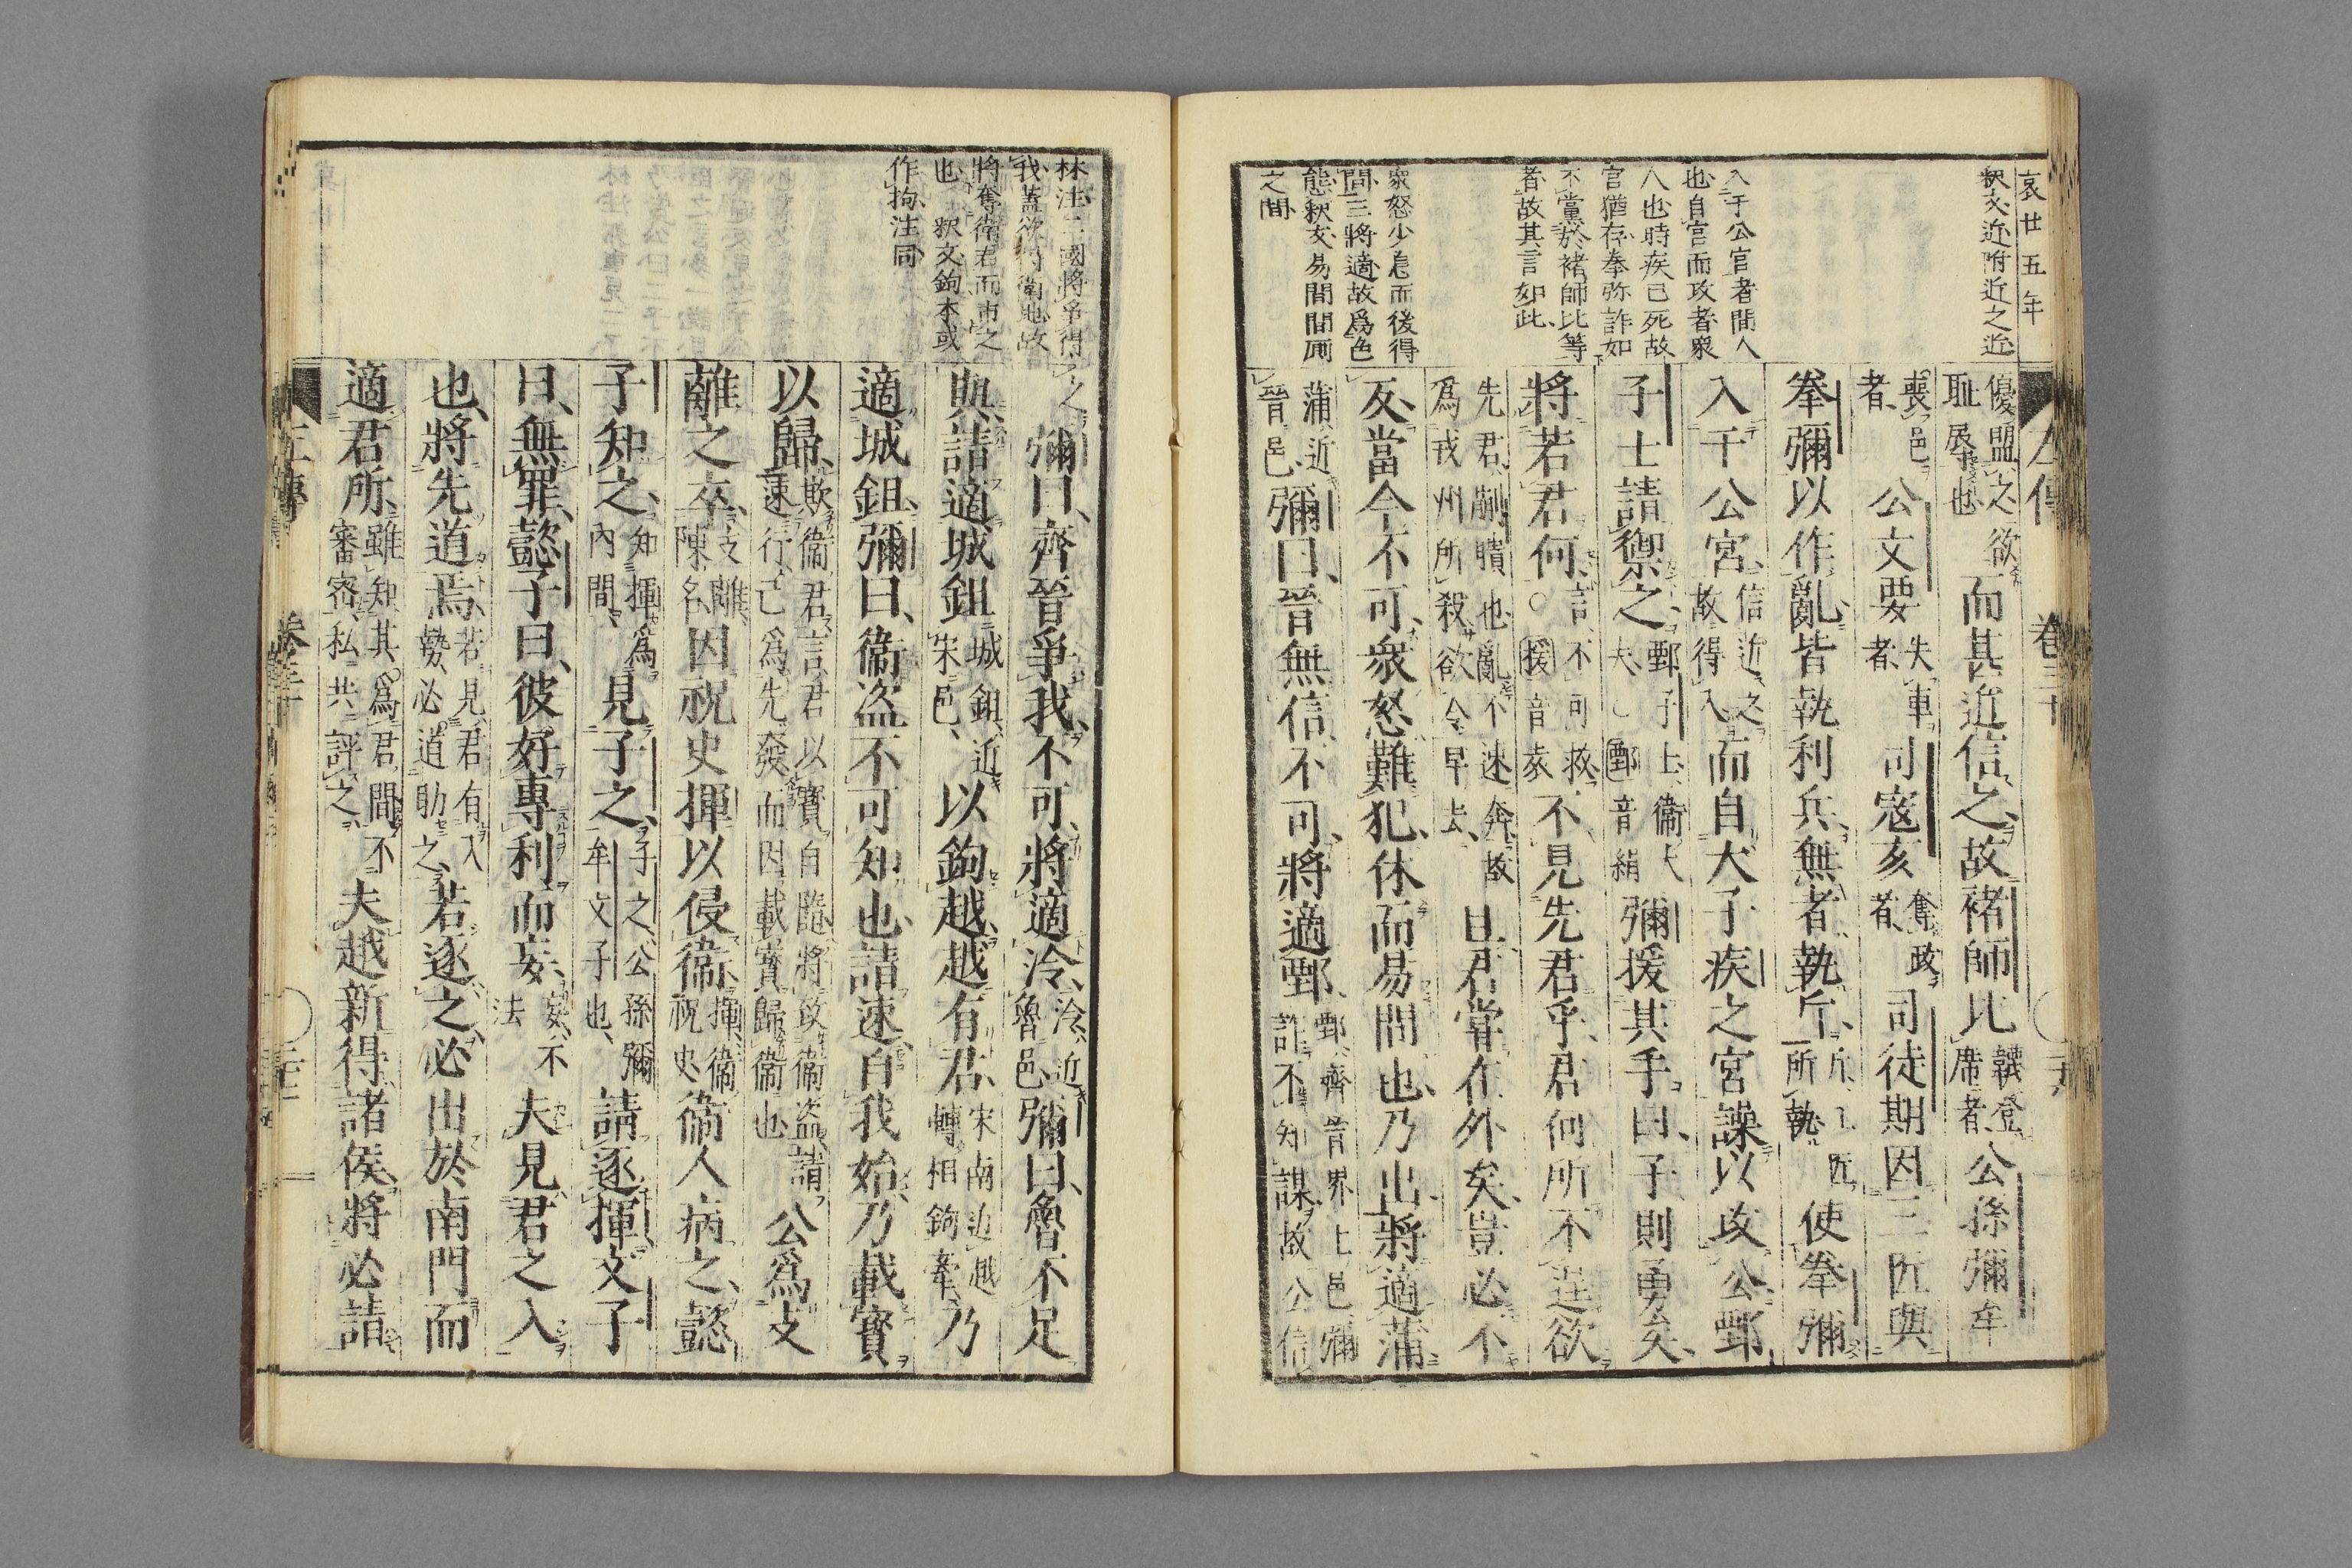 哀廿五年
釈文近附近之近
入于公宮者間人
也自宮而攻者衆
人也時疾已死故
宮猶存拳弥詐如
不黨於褚師比等
者故其言如此
衆怒少息而後得
間三将適故爲色
態釈文易間間厠
之間
左傳 卷三十
優盟之欲
耻辱也
而甚近信之故褚師比
韤登
席者
公孫彌牟
喪邑
者
公文要
失車
者
司寇亥
奪政
者
司徒期因三匠與
拳彌以作亂皆執利兵無者執斤
斤工匠
所執
使拳彌
入于公宮
信近之
故得入
而自大子疾之宮譟以攻公鄄
子士請禦之
鄄子士衞大
夫○鄄音絹
彌援其手曰子則勇矣
將若君何
言不可救
○援音爰
不見先君乎君何所不逞欲
先君蒯聵也亂不速奔故
爲戎州所殺欲令早去
且君嘗在外矣豈必不
反當今不可衆怒難犯休而易間也乃出將適蒲
蒲近
晉邑
彌曰晉無信不可將適鄄
鄄齊晉界上邑彌
詐不知謀故公信
林注二國將爭得之
我蓋欲得衛地故
將奪衛君而市之
也 釈文鉤本或
作拘注同
彌曰齊晉爭我不可將適泠
泠近
魯邑
彌曰魯不足
與請適城鉏
城鉏近
宋邑
以鉤越越有君
宋南近越
轉相鉤牽
乃
適城鉏彌曰衞盜不可知也請速自我始乃載寳
以歸
欺衞君言君以寳自隨將致衞盜請
速行己爲先發而因載寳歸衞也
公爲支
離之卒
支離
陳名
因祝史揮以侵衞
揮衞
祝史
衞人病之懿
子知之
知揮爲
內間
見子之
子之公孫彌
牟文子也
請逐揮文子
曰無罪懿子曰彼好專利而妄
妄不
法
夫見君之入
也將先道焉
若見君有入
勢必道助之
若逐之必出於南門而
適君所
雖知其爲君間不
審察私共評之
夫越新得諸侯將必請